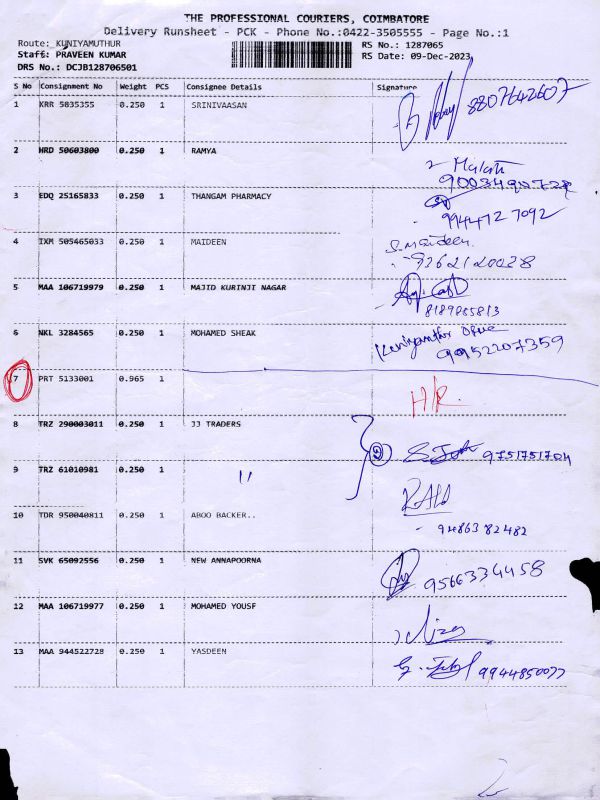 THE PROFESSIONAL COURIERS, COIMBATORE
Delivery Runsheet - PCK - Phone No.:0422-3505555 - Page No.:1
Route: KUNIYAMUTHUR
RS No.: 1287065
Staff: PRAVEEN KUMAR
RS Date: 09-Dec-2023
DRS No.: DCJB128706501
S No Consignment No Weight PCS Consignee Details Signature
1 KRR 5835355 0.250 1 SRINIVAASAN 8807642607
2 HRD 50603800 0.250 1 RAMYA
3 EDQ 25165833 0.250 1 THANGAM PHARMACY 9944727092
4 IXM 505465033 0.250 1 MAIDEEN S.Maideen
5 MAA 106719979 0.250 1 MAJID KURINJI NAGAR
6 NKL 3284565 0.250 1 MOHAMED SHEAK 9952207359
7 PRT 5133001 0.965 1 H/R.
8 TRZ 290003011 0.250 1 JJ TRADERS 2 9751751704
9 TRZ 61010981 0.250 1 "
10 TDR 950040811 0.250 1 ABOO BACKER.. 9486382482
11 SVK 65092556 0.250 1 NEW ANNAPOORNA 9566334458
12 MAA 106719977 0.250 1 MOHAMED YOUSF
13 MAA 944522728 0.250 1 YASDEEN